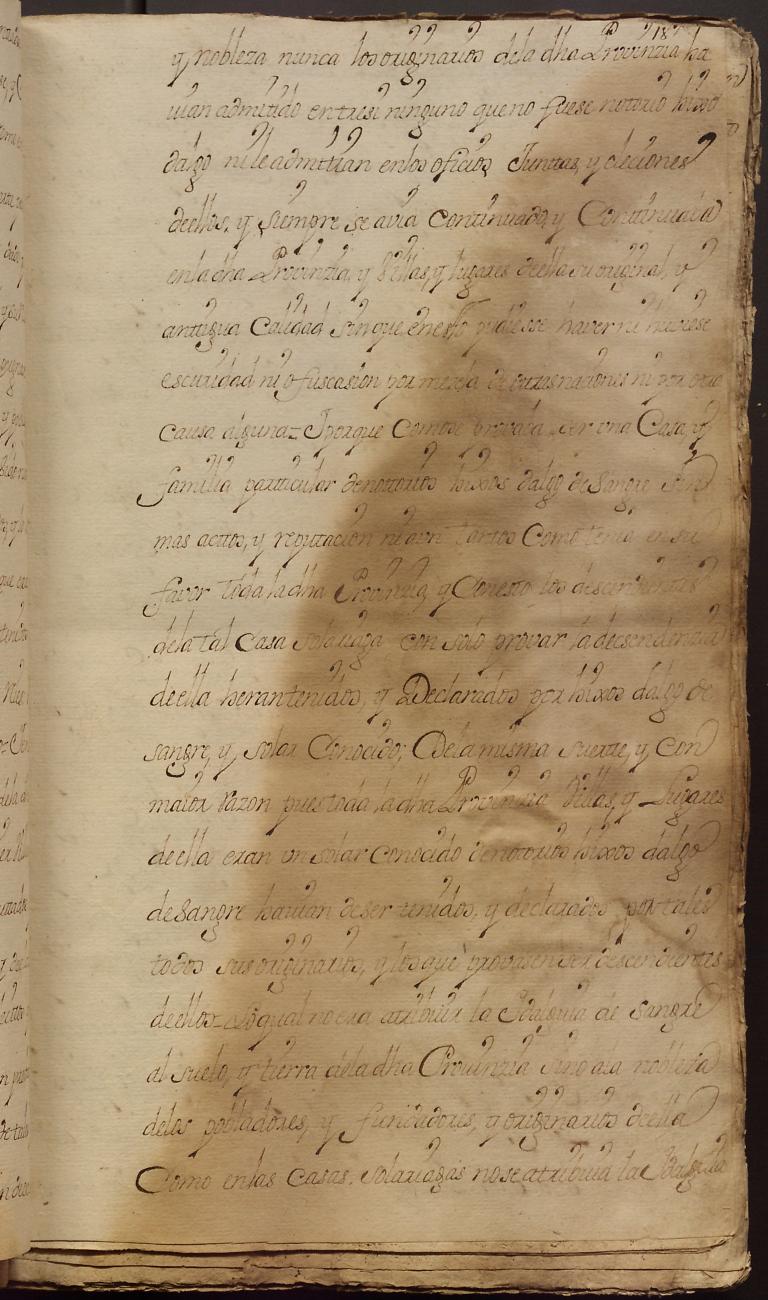 187
y nobleza nunca los originarios dela dha Provinzia ha
uian admitido entresi ninguno que no fuese notorio hixo
dalgo ni le admitian enlos oficios Juntas, y eleciones
deellos, y siempre se avia Continuado, y Continuava
enla dha Provinzia, y Villas, y lugares deella su original, y
antigua Calidad sin que enesto pudiesse haver ni huviese
escuridad ni ofuscasion por mezcla de otras naciones ni por otra
causa alguna = Iporque Como se provava ser una Casa, y
familia particular denotorios hixos dalgo de Sangre sin
mas actos, y reputacion ni aun tantos Como tenia en su
favor toda la dha Provinzia, y Conesto los descendientes
dela tal Casa solariega con solo provar la decsendenzia
de ella heran tenidos, y Declarados por hixos dalgo de
sangre, y solar Conocido; Dela misma suerte, y con
maior razon pues toda la dha Provinzia Villas, y Lugares
de ella eran un solar conocido denotorios hixos dalgo
de sangre hauian deser tenidos, y declarados por tales
todos sus originarios, y los que provasen ser descendientes
de ellos = Lo qual no era atribuir la Idalguia de sangre
al suelo, y tierra dela dha Provinzia sino ala nobleza
delos pobladores, y fundadores, y originarios deella
Como enlas casas solariegas nose atribuia la Idalguia